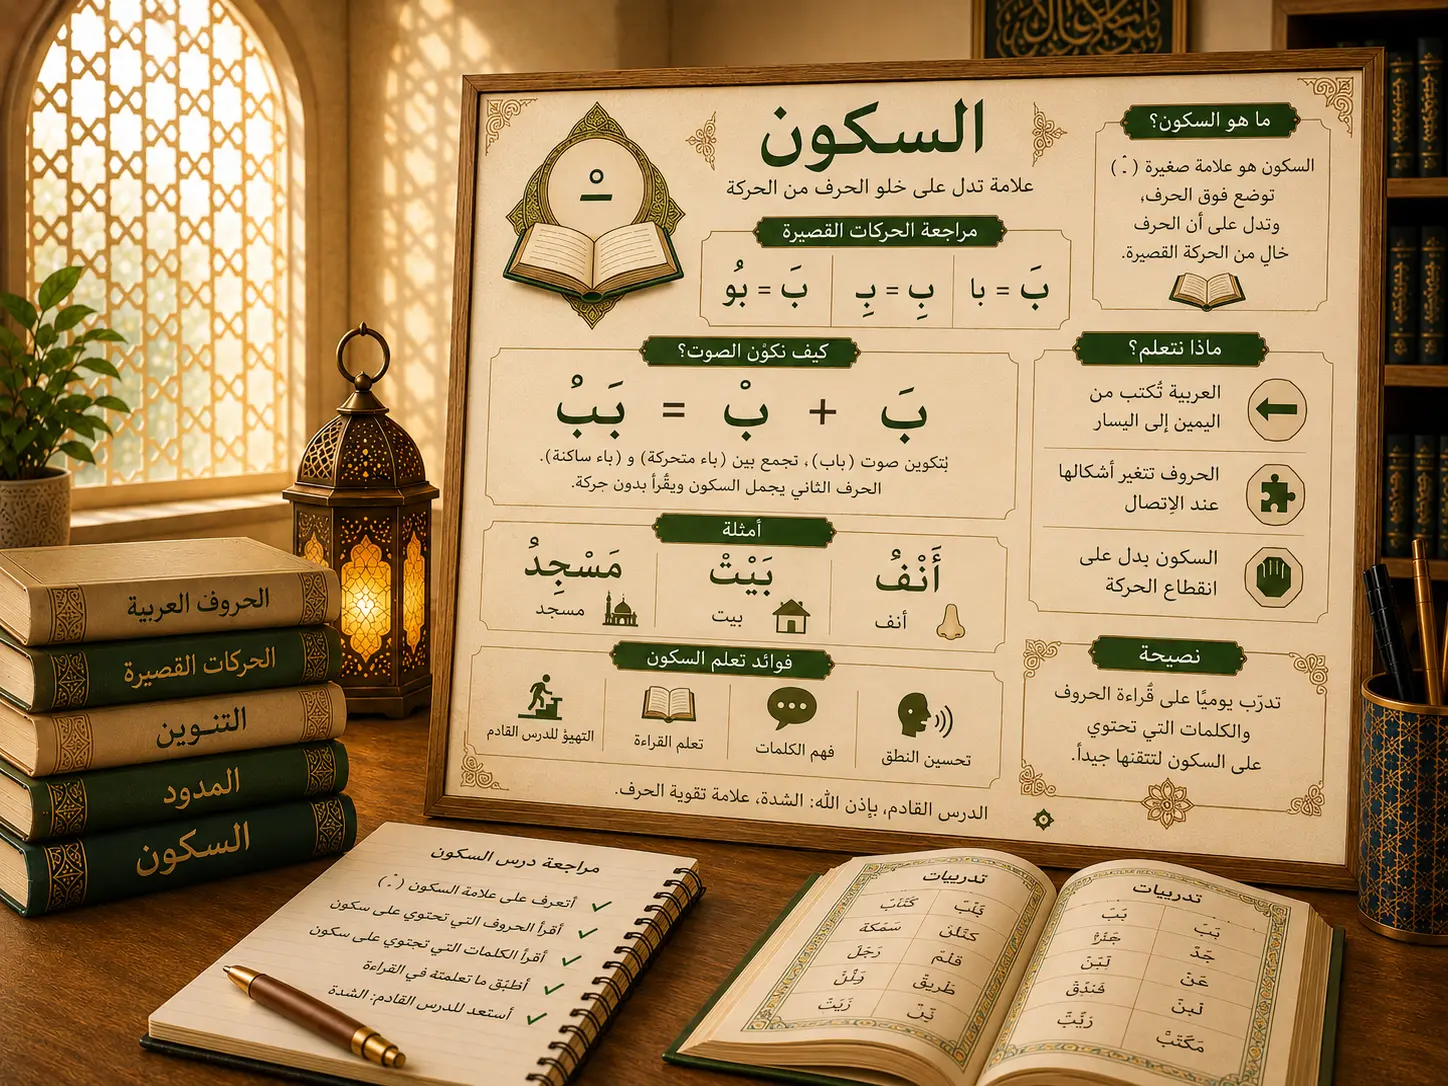 السكون
علامة تدل على خلو الحرف من الحركة
ما هو السكون؟
السكون هو علامة صغيرة ( ْ )
توضع فوق الحرف،
وتدل على أن الحرف
خالٍ من الحركة القصيرة.
مراجعة الحركات القصيرة
بَ = با
بِ = بِ
بَ = بُو
كيف نكوْن الصوت؟
بَ + بْ = بَبُ
تجمع بين (باء متحركة) و (باء ساكنة).
الحرف الثاني يجمل السكون ويقُرأ بدون جركة.
ماذا نتعلم؟
العربية تُكتب من
اليمين إلى اليسار
الحروف تتغير أشكالها
عند الإتصال
السكون بدل على
انقطاع الحركة
أمثلة
أَنْفُ
أنف
بَيْتْ
بيت
مَسْجِدُ
مسجد
فوائد تعلم السكون
تحسين النطق
فهم الكلمات
تعلم القراءة
التهيؤ للدرس القادم
نصيحة
تدرّب يوميًا على قُراءة الحروف
والكلمات التي تحتوي
على السكون لتتقنها جيداً.
الدرس القادم، بإذن الله: الشدة، علامة تقوية الحرف.
الحروف العربية
الحركات القصيرة
التنوين
المدود
السكون
مراجعة درس السكون
أتعرف على علامة السكون ( ْ )
أقرأ الحروف التي تحتوي على سكون
أقرأ الكلمات التي تجتوي على سكون
أطبّق ما تعلمتة في القراءة
أستعد للدرس القادم: الشدة
تدريبات
بَبَ
جَدَ
لَبَنَ
عَنَ
فَندَقْ
لَبنَ
مَكَتَبْ
تدريبات
سَمَكة
رَجَلَ
قَلم
طَريقْ
زَيَتَ